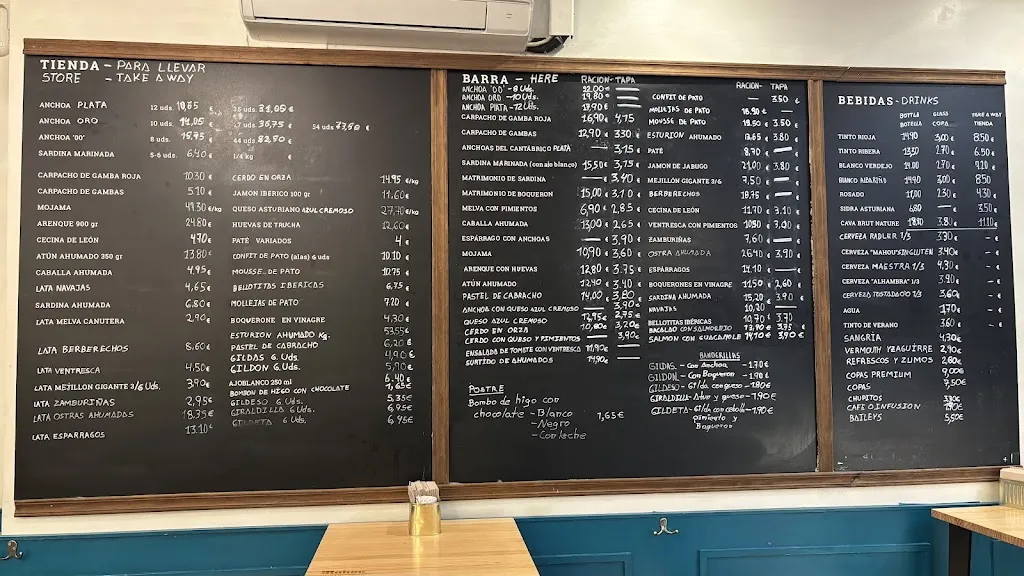 TIENDA - PARA LLEVAR
STORE - TAKE AWAY
ANCHOA PLATA 12 uds. 10,65 € 25 uds. 21,05 €
ANCHOA ORO 10 uds. 14,05 €
ANCHOA "00" 8 uds. 15,75 € 44 uds. 82,50 €
SARDINA MARINADA 5-6 uds. 6,40 € 1/4 kg €
CARPACHO DE GAMBA ROJA 10.30 €
CARPACHO DE GAMBAS 5.10 €
MOJAMA 49.30 €/kg
ARENQUE 900 gr 24.80 €
CECINA DE LEÓN 4.70 €
ATÚN AHUMADO 350 gr 13.80 €
CABALLA AHUMADA 4.95 €
LATA NAVAJAS 4,65 €
SARDINA AHUMADA 6.80 €
LATA MELVA CANUTERA 2,90 €
LATA BERBERECHOS 8.60 €
LATA VENTRESCA 4.50 €
LATA MEJILLON GIGANTE 3/6 Uds. 3,90 €
LATA ZAMBURIÑAS 2,95 €
LATA OSTRAS AHUMADAS 18.35 €
LATA ESPARRAGOS 13.10 €
CERDO EN ORZA 14.95 €/kg
JAMON IBERICO 100 gr 11.60 €
QUESO ASTURIANO AZUL CREMOSO 27,70 €/kg
HUEVAS DE TRUCHA 12,60 €
PATÉ VARIADOS 4 €
CONFIT DE PATO (alas) 6 uds 10.10 €
MOUSSE DE PATO 10.75 €
BELLOTITAS IBERICAS 6,75 €
MOLLEJAS DE PATO 7.20 €
BOQUERONE EN VINAGRE 4,30 €
ESTURION AHUMADO Kg. 53,55 €
PASTEL DE CABRACHO 6,20 €
GILDAS 6 Uds. 4,90 €
GILDON 6 Uds. 5,90 €
AJOBLANCO 250 ml 6.40 €
BOMBON DE HIGO CON CHOCOLATE 1,65 €
GILDESO 6 Uds. 5,35 €
GIRALDILLA 6 Uds. 6,95 €
GILDETA 6 Uds. 6,45 €
BARRA - HERE RACION- TAPA
ANCHOA "00" - 8 Uds. 22.00 € —
ANCHOA ORO - 10 Uds. 19,80 € —
ANCHOA PLATA - 12 Uds. 17,90 € —
CARPACHO DE GAMBA ROJA 16,90 € 4,75
CARPACHO DE GAMBAS 12,90 € 3.30 €
ANCHOAS DEL CANTÁBRICO PLATA — 3,15 €
SARDINA MARINADA (con ajo blanco) 15,50 € 3,75 €
MATRIMONIO DE SARDINA — 3,40 €
MATRIMONIO DE BOQUERON 15,00 € 3,10 €
MELVA CON PIMIENTOS 6,90 € 2,85 €
CABALLA AHUMADA 13,00 € 2,65 €
ESPÁRRAGO CON ANCHOAS — 3,90 €
MOJAMA 10,90 € 3,60 €
ARENQUE CON HUEVAS 12,80 € 3.75 €
ATÚN AHUMADO 12,40 € 3,40 €
PASTEL DE CABRACHO 14,00 € 3,80 €
ANCHOA CON QUESO AZUL CREMOSO — 3,90 €
QUESO AZUL CREMOSO 12,95 € 2,75 €
CERDO EN ORZA 10,80 € 3,20 €
CERDO CON QUESO Y PIMIENTOS — 3,90 €
ENSALADA DE TOMATE CON VENTRESCA 10,90 € —
SURTIDO DE AHUMADOS 14,90 € —
POSTRE
Bombo de higo con
chocolate - Blanco 1,65 €
- Negro
- Con leche
RACION- TAPA
CONFIT DE PATO — 3,50 €
MOLLEJAS DE PATO 18.90 €
MOUSSE DE PATO 18.50 € 3.50 €
ESTURION AHUMADO 3.80 €
PATÉ 8,70 € —
JAMON DE JABUGO 21,00 € 3,80 €
MEJILLÓN GIGANTE 3/6 7,50 € —
BERBERECHOS 18.75 € —
CECINA DE LEÓN 11,70 € 3,10 €
VENTRESCA CON PIMIENTOS 10,50 € 3,00 €
ZAMBURIÑAS 7,60 € —
OSTRA AHUMADA 26,40 € 3,90 €
ESPARRAGOS 14,10 € —
BOQUERONES EN VINAGRE 11,50 € 2,60 €
SARDINA AHUMADA 15,20 € 3,90 €
NAVAJAS 10,20 € —
BELLOTITAS IBÉRICAS 10,70 € 3,70 €
BACALAO CON SALMOREJO 13,90 € 3,75 €
SALMON CON GUACAMOLE 14,10 € 3,90 €
BANDERILLAS
GILDAS - Con Anchoa - 1.70 €
GILDON - Con Boqueron - 1.90 €
GILDESO - Gilda con queso - 1.80 €
GIRALDILLA - Atun y queso - 1,90 €
GILDETA - Gilda con cebolli- 1.90 €
pimiento y
Boqueron
BEBIDAS - DRINKS
BOTTLE GLASS TAKE A WAY
BOTELLA COPA TIENDA
TINTO RIOJA 14.90 3,00 € 8.50 €
TINTO RIBERA 13.30 2.70 € 6.50 €
BLANCO VERDEJO 14.00 2.70 € 9,20 €
BLANCO ALBARIÑO 14.90 3,00 € 8.50 €
ROSADO 11,00 2.30 € 4.30 €
SIDRA ASTURIANA 6,80 — € 3.50 €
CAVA BRUT NATURE 3.80 € 11.10 €
CERVEZA RADLER 1/3 3.30 € - €
CERVEZA "MAHOU" SIN GLUTEN 3.40 € - €
CERVEZA MAESTRA 1/3 4.30 € - €
CERVEZA "ALHAMBRA" 1/3 3.90 € - €
CERVEZA TOSTADA 0/0 1/3 3.60 € - €
AGUA 1.70 € - €
TINTO DE VERANO 3.60 € - €
SANGRIA 4,30 €
VERMOUTH YZAGUIRRE 2,90 €
REFRESCOS Y ZUMOS 2.60 €
COPAS PREMIUM 9,00 €
COPAS 7,50 €
CHUPITOS €
CAFÉ O INFUSION €
BAILEYS 5,50 €